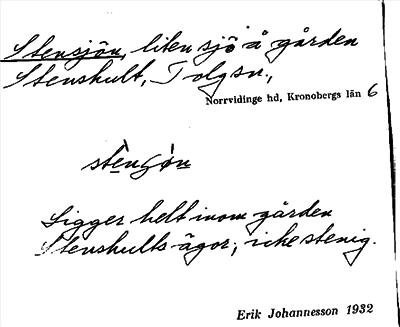 Stensjön, liten sjö å gården
Stenshult, Tolgsn.,
Norrvidinge hd, Kronobergs län 6
Ligger helt inom gården
Stenshults ägor; icke stenig.
Erik Johannesson 1932